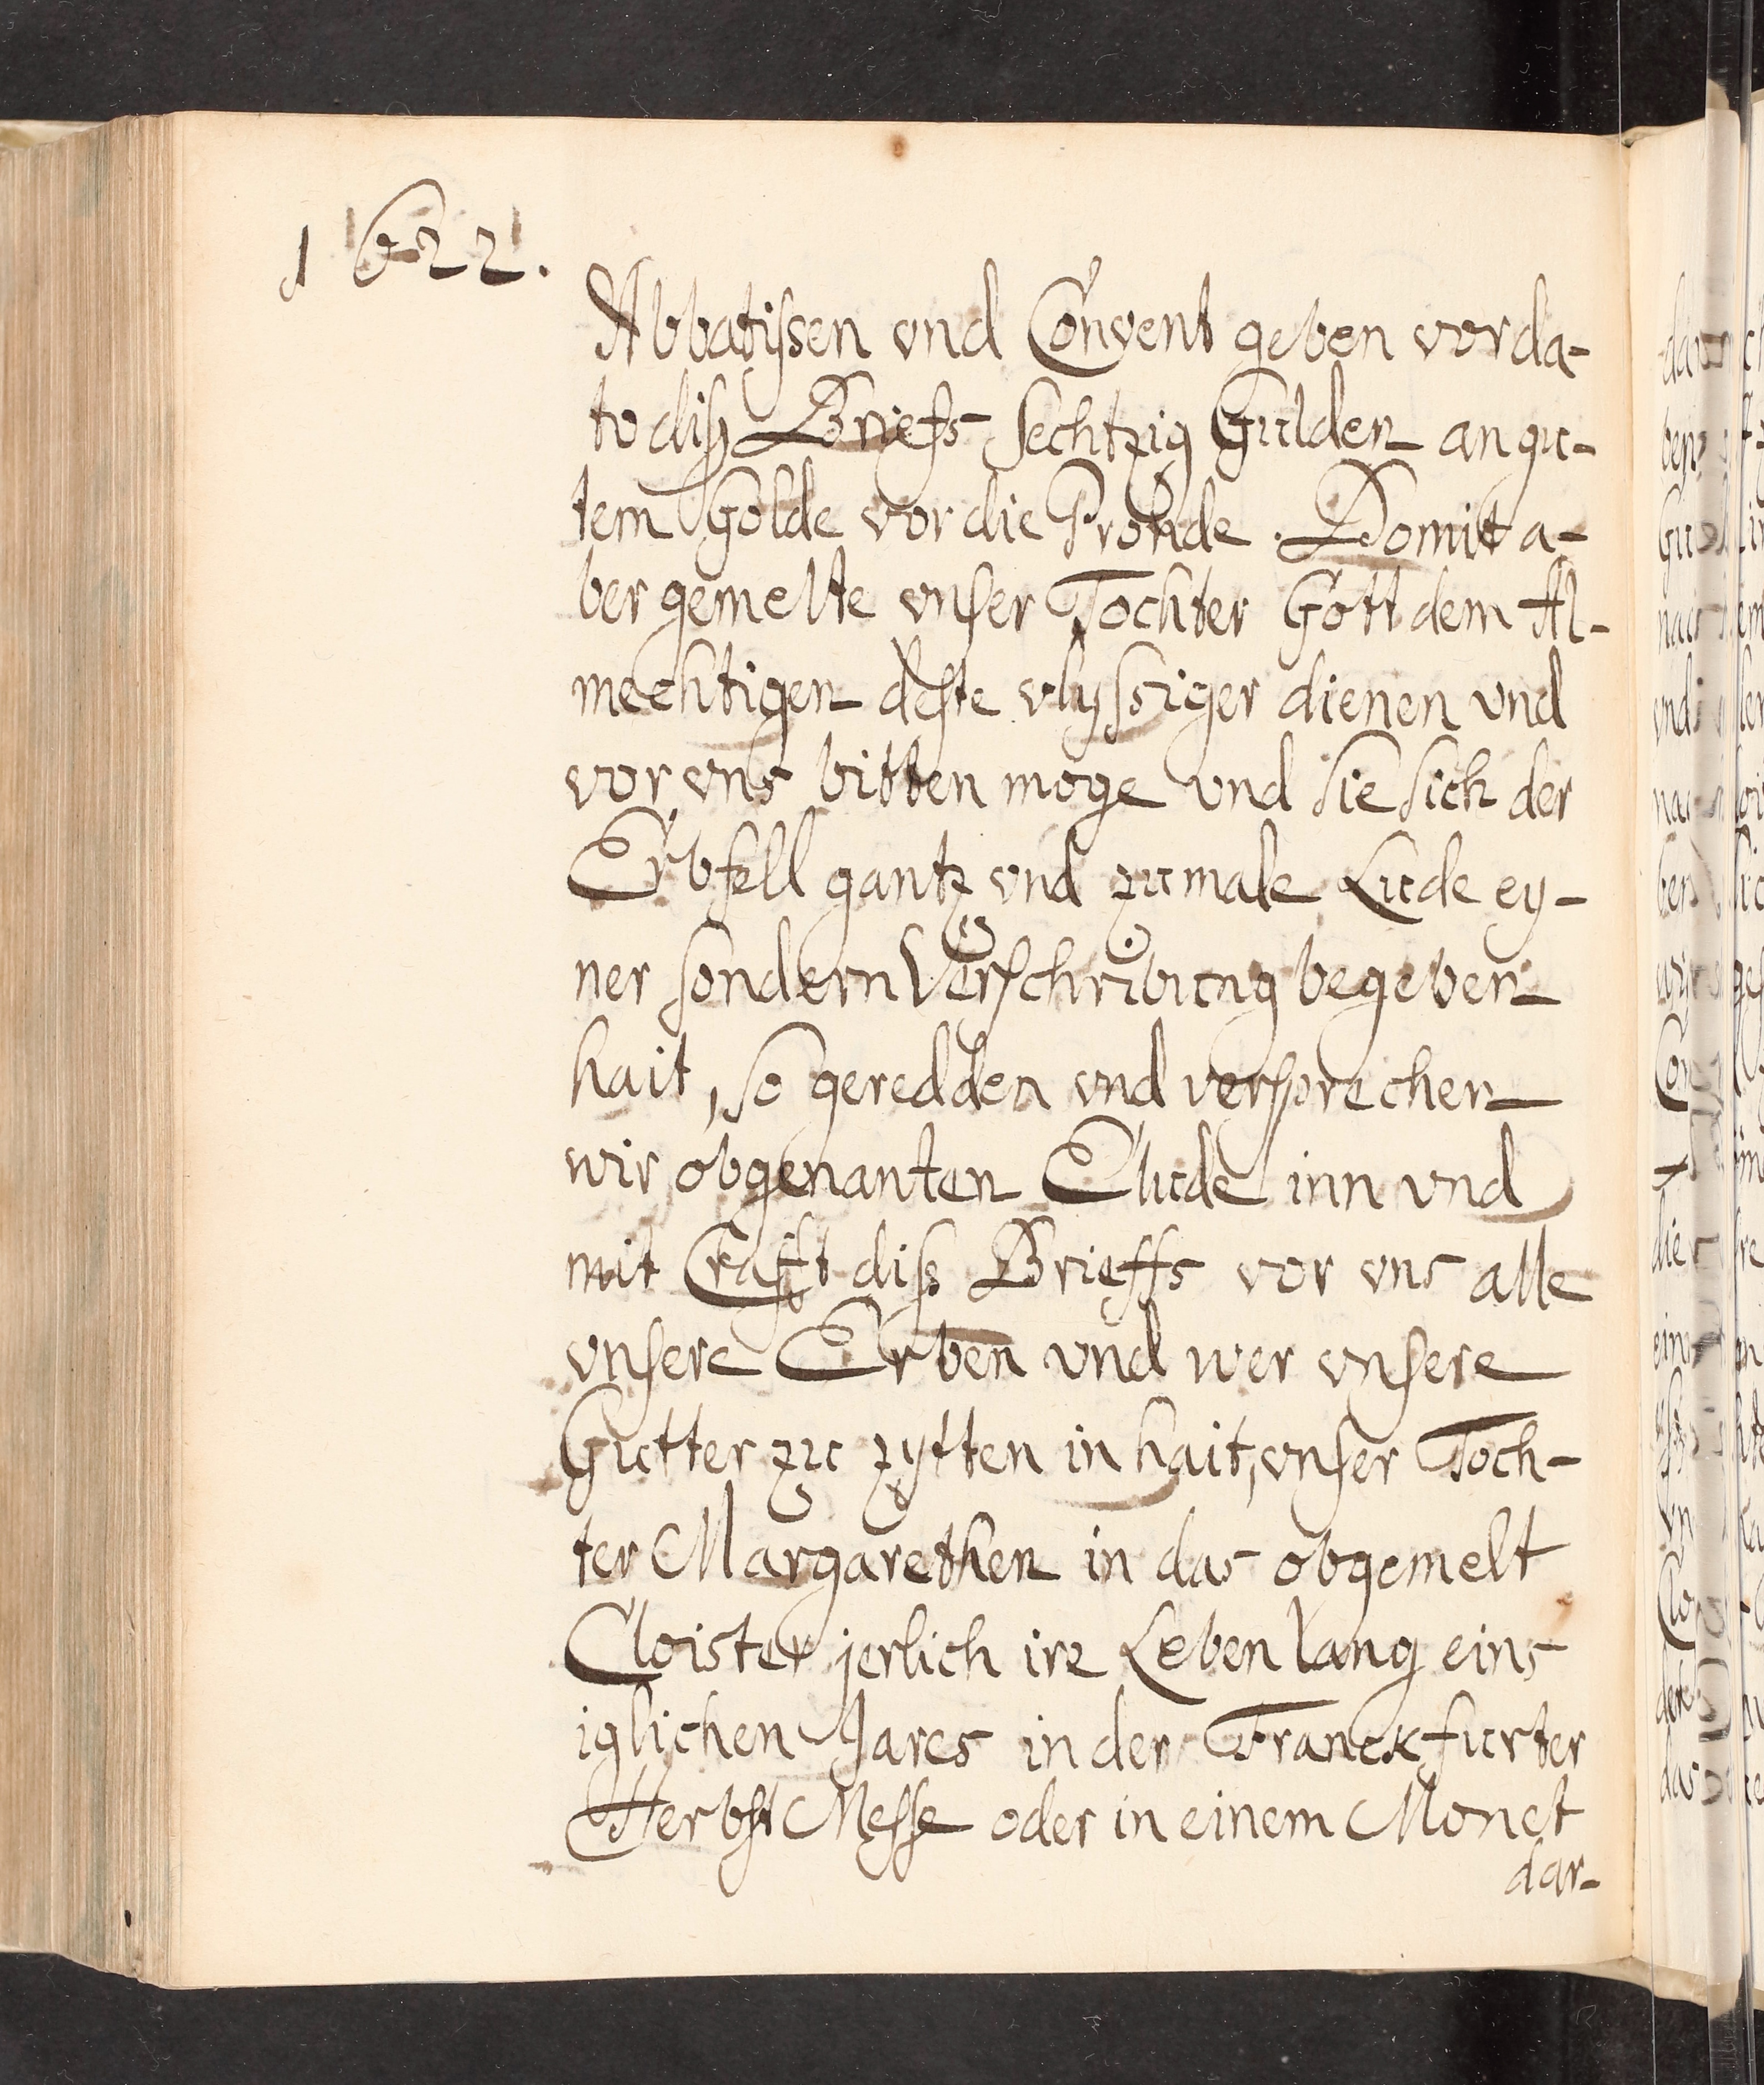 1622.
Abbatissen vnd Convent geben vor da-
to diß Briefs sechtzig Gulden an gu-
tem Golde vor die Pronde. Domit a-
ber gemelte vnser Tochter Gott dem Al-
mechtigen deste vlyssiger dienen vnd
vor vns bitten moge vnd sie sich der
Erbfell gantz vnd zumale Lude ey-
ner sondern Verschribung begeben
hait, so geredden vnd versprechen
wir obgenanten Elude inn vnd
mit Crafft diß Brieffs vor vns alle
vnsere Erben vnd wer vnsere
Gutter zu zytten in hait, vnser Toch-
ter Margarethen in das obgemelt
Cloister jerlich ire Leben lang eins
iglichen Jares in der Franckfurter
Herbst Messe oder in einem Monet
dar-